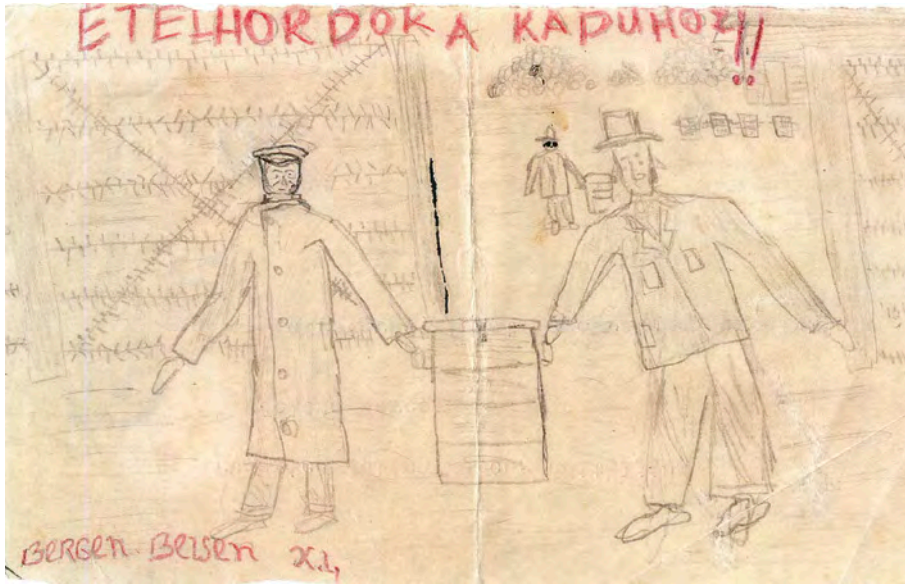 ETELHORDOK A KAPUHOZ!!
BERGEN BELSEN XI,